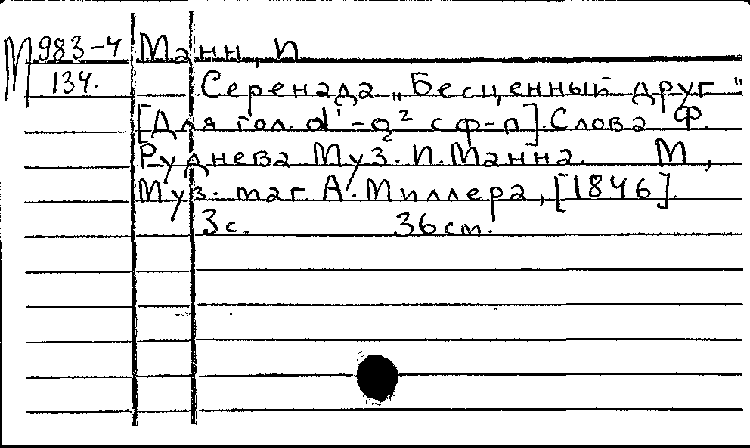 М 983-4 Манн, П
134. Серенада „Бесценный друг"
[Для гол. d¹-g² с ф-п]. Слова Ф.
Руднева Муз. П. Манна. М,
Муз. маг. А. Миллера, [1846].
3 с. 36 cm.